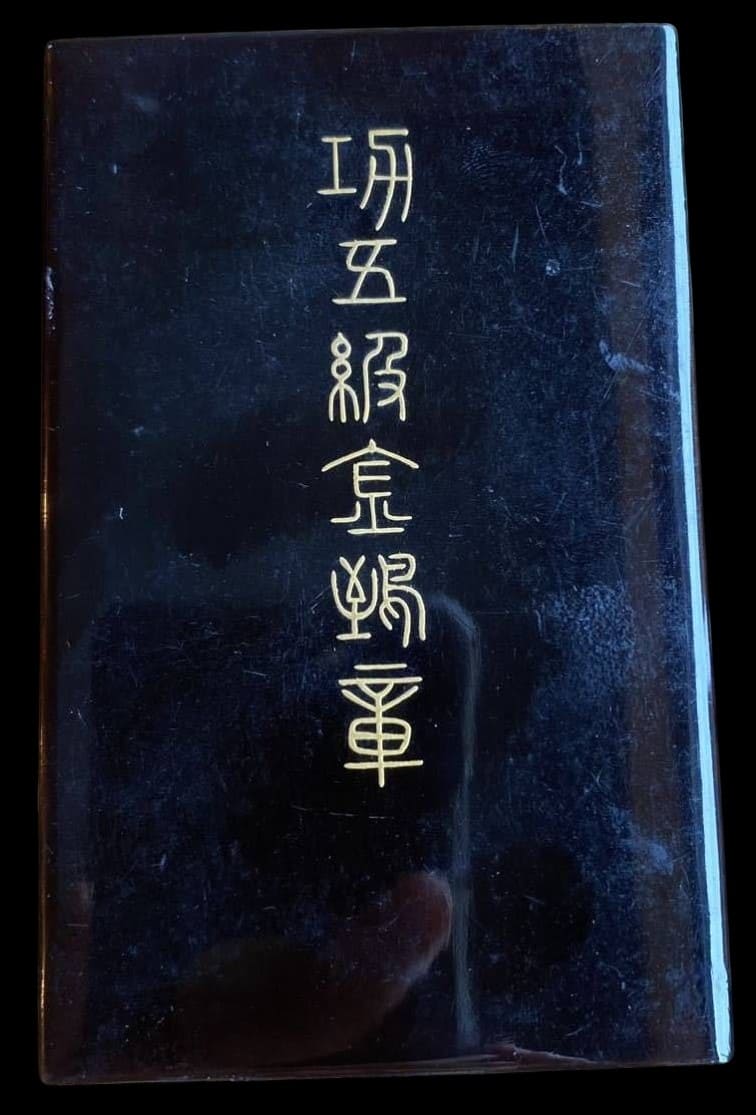 功五級金鵄章